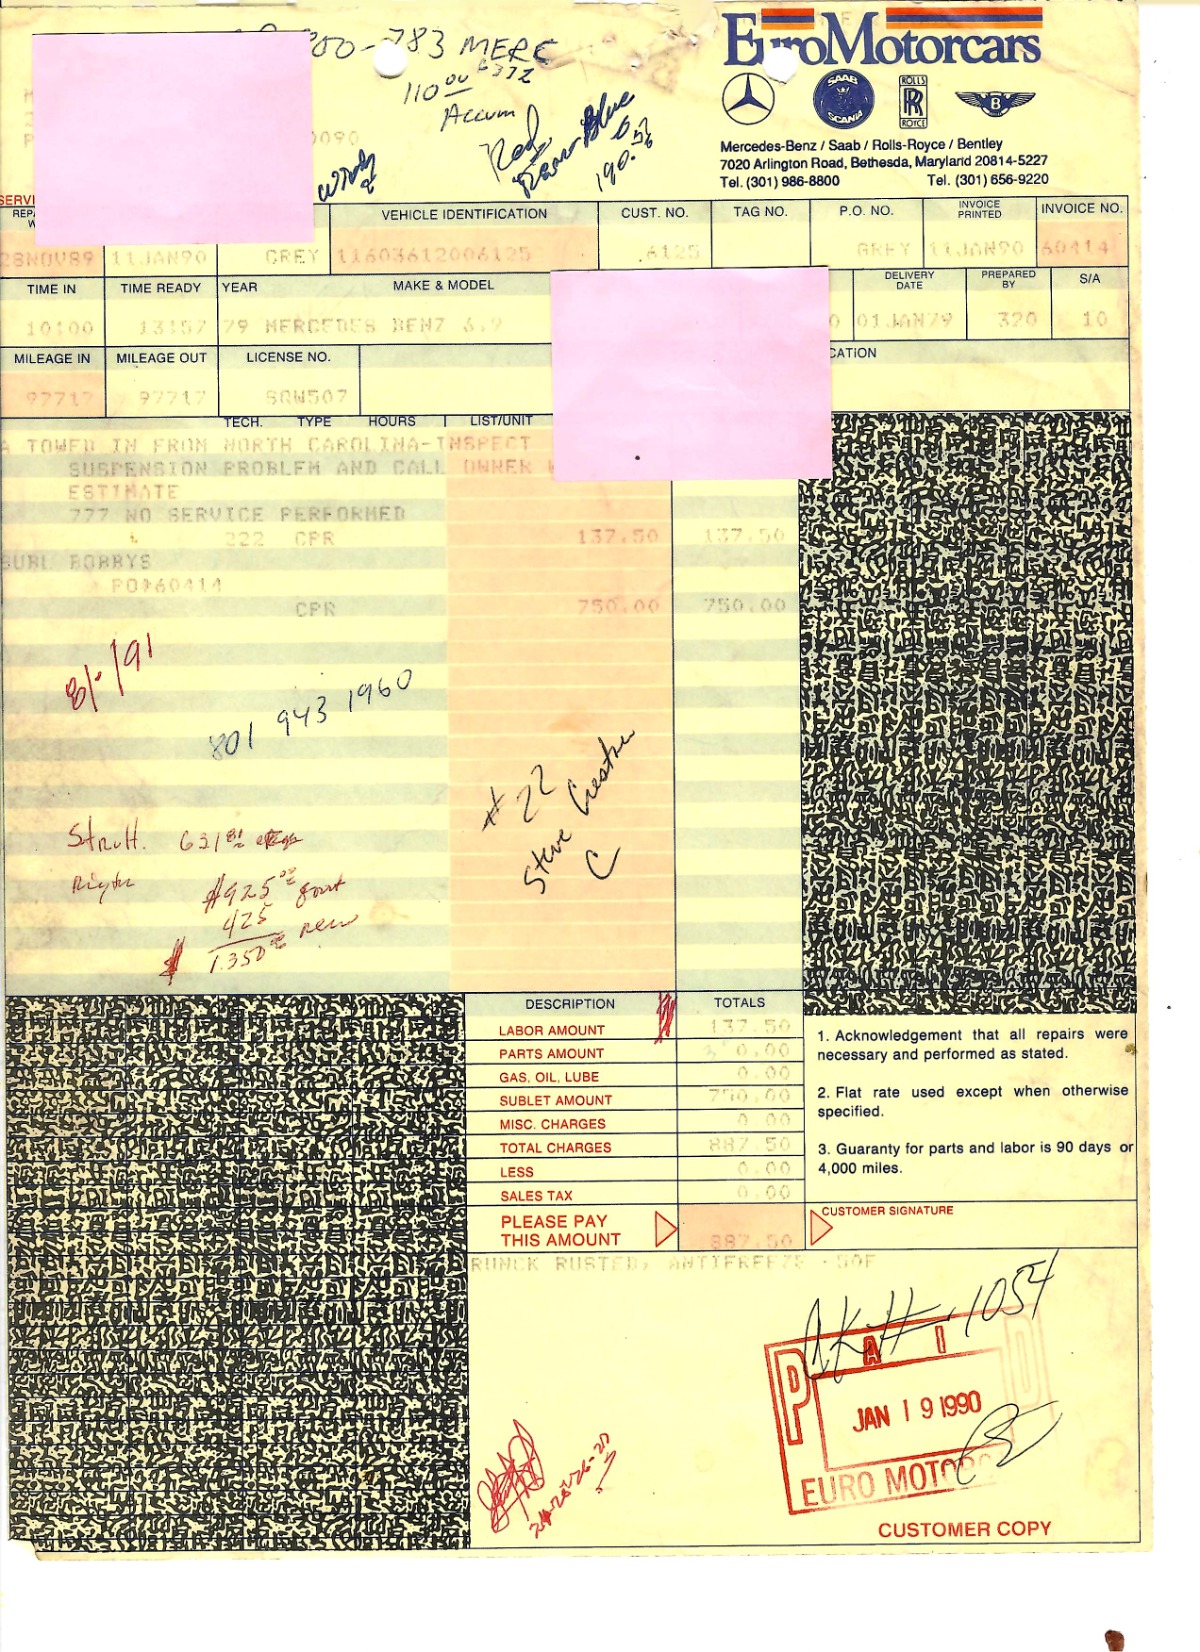 783 MERC
110.00
Accum
0090
EuroMotorcars
SAAB
SCANIA
ROLLS
RR
ROYCE
B
Mercedes-Benz / Saab / Rolls-Royce / Bentley
7020 Arlington Road, Bethesda, Maryland 20814-5227
Tel. (301) 986-8800 Tel. (301) 656-9220
SERVI
REP VEHICLE IDENTIFICATION CUST. NO. TAG NO. P.O. NO. INVOICE PRINTED INVOICE NO.
28NOV89 11JAN90 GREY 11603612006125 6125 GREY 11JAN90 60414
TIME IN TIME READY YEAR MAKE & MODEL DELIVERY DATE PREPARED BY S/A
10:00 13:57 79 MERCEDES BENZ 6.9 0 01JAN79 320 10
MILEAGE IN MILEAGE OUT LICENSE NO. CATION
97717 97717 SQW507
TECH. TYPE HOURS LIST/UNIT
A TOWED IN FROM NORTH CAROLINA-INSPECT
SUSPENSION PROBLEM AND CALL OWNER W
ESTIMATE
777 NO SERVICE PERFORMED
222 CPR 137.50 137.50
SUBL BOBBYS
PO#60414
CPR 750.00 750.00
801 943 1960
# 22
Steve
C
Strutt. 631
$925.00 front
425 rear
$ 1350.00
DESCRIPTION TOTALS
LABOR AMOUNT 137.50
PARTS AMOUNT 0.00
GAS, OIL, LUBE 0.00
SUBLET AMOUNT 750.00
MISC. CHARGES 0.00
TOTAL CHARGES 887.50
LESS 0.00
SALES TAX 0.00
PLEASE PAY
THIS AMOUNT 887.50
1. Acknowledgement that all repairs were
necessary and performed as stated.
2. Flat rate used except when otherwise
specified.
3. Guaranty for parts and labor is 90 days or
4,000 miles.
CUSTOMER SIGNATURE
RUNCK RUSTED, ANTIFREEZE -50F
1054
PAID
JAN 19 1990
EURO MOTORS
CUSTOMER COPY